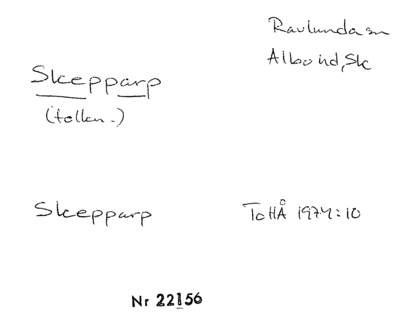 Ravlunda sn
Albo hd, Sk
Skepparp
(tolkn.)
Skepparp
ToHÅ 1974:10
Nr 22156